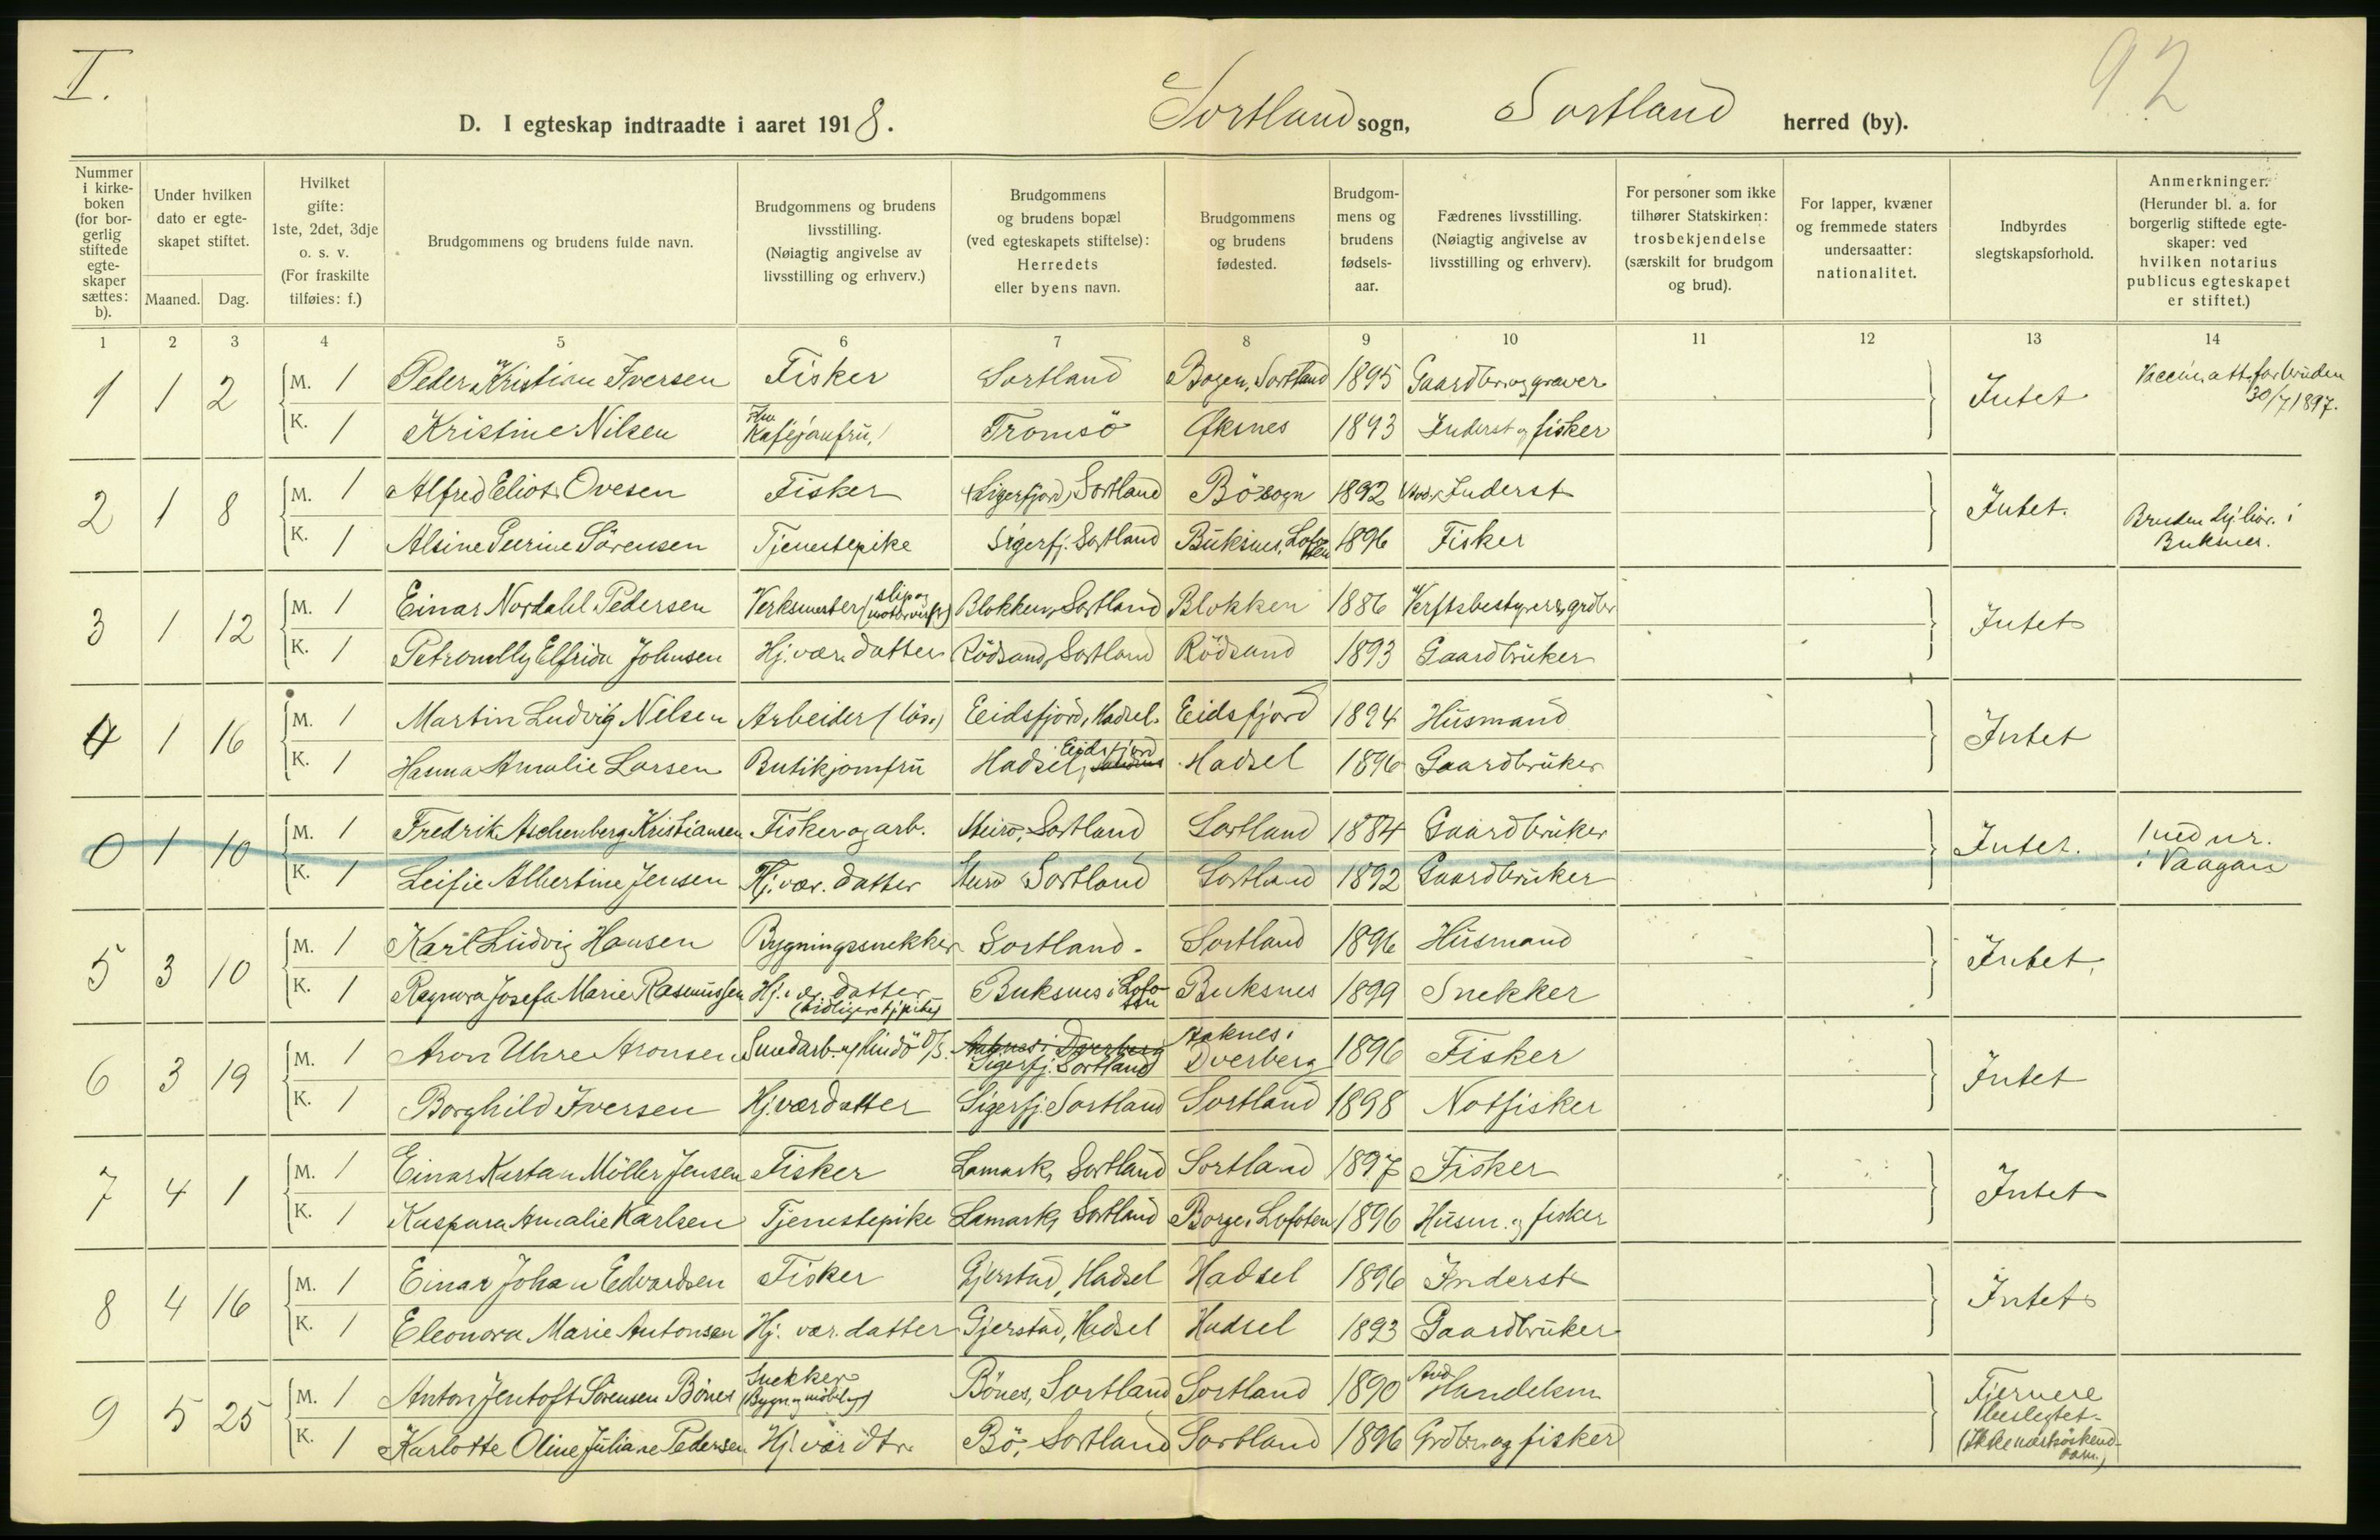 I.
92
D. I egteskap indtraadte i aaret 1918. Sortland sogn, Sortland herred (by).
Nummer i kirke-boken (for bor-gerlig stiftede egte-skaper sættes: b).
Under hvilken dato er egte-skapet stiftet.
Maaned. Dag.
Hvilket gifte: 1ste, 2det, 3dje o. s. v. (For fraskilte tilføies: f.)
Brudgommens og brudens fulde navn.
Brudgommens og brudens livsstilling. (Nøiagtig angivelse av livsstilling og erhverv.)
Brudgommens og brudens bopæl (ved egteskapets stiftelse): Herredets eller byens navn.
Brudgommens og brudens fødested.
Brudgom-mens og brudens fødsels-aar.
Fædrenes livsstilling. (Nøiagtig angivelse av livsstilling og erhverv).
For personer som ikke tilhører Statskirken: trosbekjendelse (særskilt for brudgom og brud).
For lapper, kvæner og fremmede staters undersaatter: nationalitet.
Indbyrdes slegtskapsforhold.
Anmerkninger. (Herunder bl. a. for borgerlig stiftede egte-skaper: ved hvilken notarius publicus egteskapet er stiftet.)
1 2 3 4 5 6 7 8 9 10 11 12 13 14
1 1 2 M. 1 Peder Kristian Iversen Fisker Sortland Bogen, Sortland 1895 Gaardbr. og graver Intet Vaccin.att. for bruden 30/7 1897.
K. 1 Kristine Nilsen Kafejomfru Tromsö Øksnes 1893 Inderst og fisker
2 1 8 M. 1 Alfred Eliot Ovesen Fisker (Sigerfjord) Sortland Bö sogn 1892 Inderst Intet. Bruden i Buksnes.
K. 1 Alsine Peerine Sörensen Tjenestepike Sigerfj. Sortland Buksnes, Lofoten 1896 Fisker
3 1 12 M. 1 Einar Nordahl Pedersen Verksmester (slip og motorverft) Blokken, Sortland Blokken 1886 Verftsbestyrer, grdbr Intet
K. 1 Petronelly Elfrida Johnsen Hj. vær. datter Rödsand, Sortland Rödsand 1893 Gaardbruker
4 1 16 M. 1 Martin Ludvig Nilsen Arbeider (lös.) Eidsfjord, Hadsel. Eidsfjord 1894 Husmand Intet
K. 1 Hanna Amalie Larsen Butikjomfru Hadsel, Eidsfjord Hadsel 1896 Gaardbruker
0 1 10 M. 1 Fredrik Aschenberg Kristiansen Fisker og arb. Steiro, Sortland Sortland 1884 Gaardbruker Intet. med nr. i Vaagan
K. 1 Leifie Albertine Jensen Hj. vær. datter Steiro Sortland Sortland 1892 Gaardbruker
5 3 10 M. 1 Karl Ludvig Hansen Bygningssnekker Sortland. Sortland 1896 Husmand Intet.
K. 1 Ragnora Josefa Marie Rasmussen Hj. vær datter (tidligere tj.pike) Buksnes i Lofoten Buksnes 1899 Snekker
6 3 19 M. 1 Aron Uhre Aronsen Sigerfj. Sortland Aaknes i Dverberg 1896 Fisker Intet
K. 1 Borghild Iversen Hj vær datter Sigerfj. Sortland Sortland 1898 Notfisker
7 4 1 M. 1 Einar Kartan Möller Jensen Fisker Lamark, Sortland Sortland 1897 Fisker Intet
K. 1 Kaspara Amalie Karlsen Tjenestepike Lamark, Sortland Borge, Lofoten 1896 Husm. og fisker
8 4 16 M. 1 Einar Johan Edvardsen Fisker Gjerstad, Hadsel Hadsel 1896 Inderst Intet
K. 1 Eleonora Marie Antonsen Hj. vær. datter Gjerstad, Hadsel Hadsel 1893 Gaardbruker
9 5 25 M. 1 Anton Jentoft Sörensen Bönes Snekker (Bygn. og möbler) Bönes, Sortland Sortland 1890 Handelsm Fjernere beslegtet (ikke närsöskend-barn.)
K. 1 Karlotte Oline Juliane Pedersen Hj. vär dtr. Bö, Sortland Sortland 1896 Grdbr. og fisker